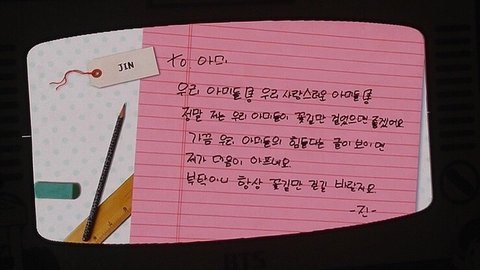 JIN
To 아미
우리 아미들 우리 사랑스러운 아미들
정말 저는 우리 아미들이 꽃길만 걸었으면 좋겠어요
가끔 우리 아미들의 힘들다는 글이 보이면
제가 마음이 아프네요
부탁이니 항상 꽃길만 걷길 바랄게요
-진-
BTS